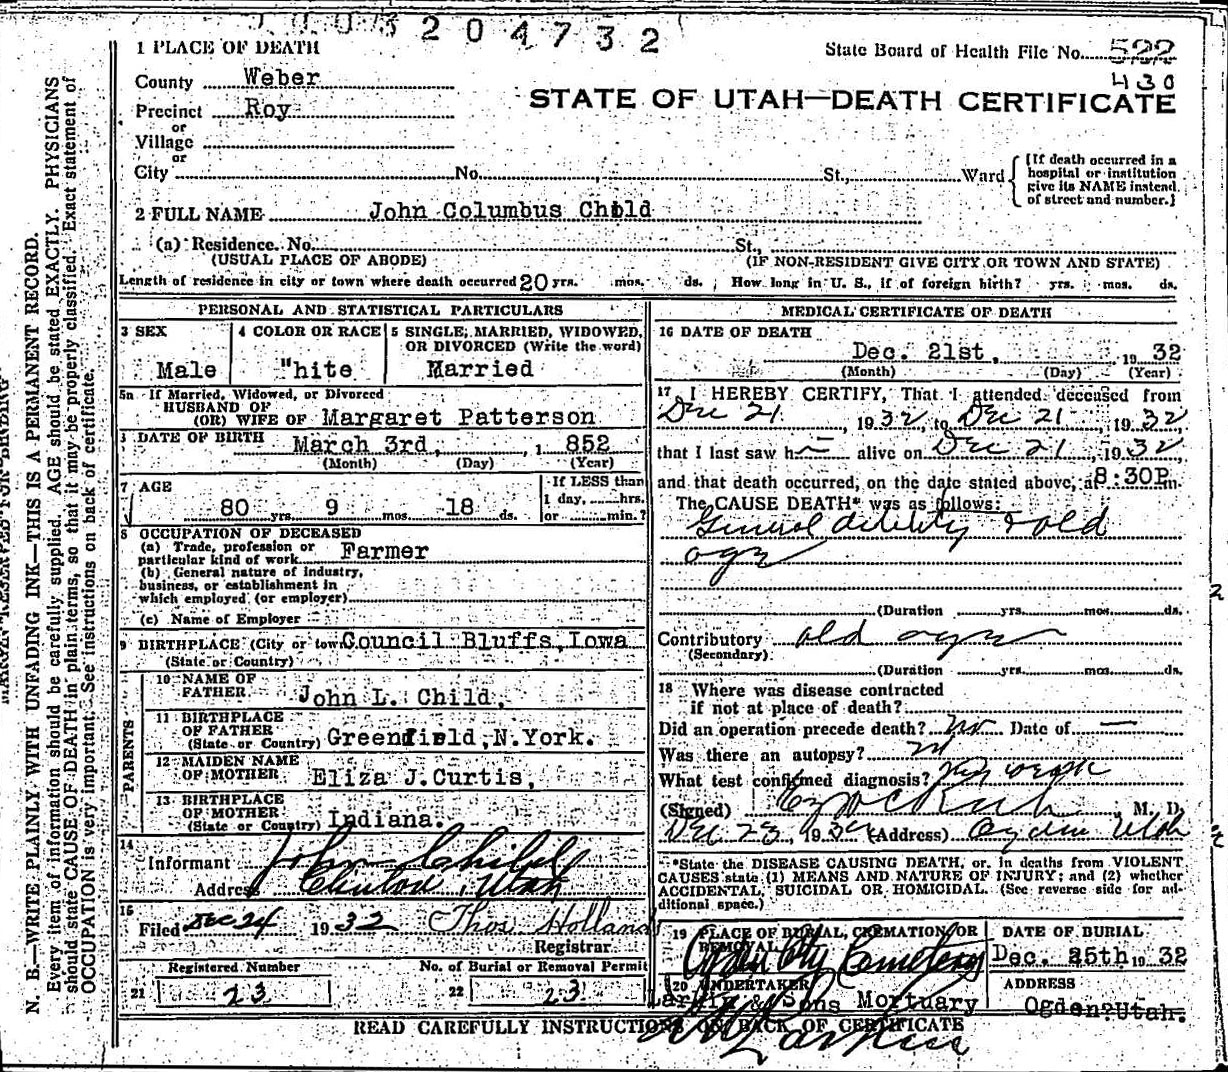 3204732
1 PLACE OF DEATH
State Board of Health File No. 522
430
County Weber
Precinct Roy
STATE OF UTAH—DEATH CERTIFICATE
or
Village
or
City No. St., Ward {If death occurred in a hospital or institution give its NAME instead of street and number.}
2 FULL NAME John Columbus Child
(a) Residence. No. St.,
(USUAL PLACE OF ABODE) (IF NON-RESIDENT GIVE CITY OR TOWN AND STATE)
Length of residence in city or town where death occurred 20 yrs. mos. ds. How long in U. S., if of foreign birth? yrs. mos. ds.
PERSONAL AND STATISTICAL PARTICULARS
3 SEX
Male
4 COLOR OR RACE
"hite
5 SINGLE, MARRIED, WIDOWED,
OR DIVORCED (Write the word)
Married
5a If Married, Widowed, or Divorced
HUSBAND OF
(OR) WIFE OF Margaret Patterson
DATE OF BIRTH March 3rd, , 1 852
(Month) (Day) (Year)
7 AGE
80 yrs. 9 mos. 18 ds.
If LESS than
1 day, hrs.
or min.?
8 OCCUPATION OF DECEASED
(a) Trade, profession or
particular kind of work Farmer
(b) General nature of industry,
business, or establishment in
which employed (or employer)
(c) Name of Employer
9 BIRTHPLACE (City or town Council Bluffs, Iowa
(State or Country)
PARENTS
10 NAME OF
FATHER John L. Child,
11 BIRTHPLACE
OF FATHER
(State or Country) Greenfield, N.York.
12 MAIDEN NAME
OF MOTHER Eliza J. Curtis,
13 BIRTHPLACE
OF MOTHER
(State or Country) Indiana.
14
Informant John Child
Address Clinton, Utah
15
Filed Dec 24 1932 Thos Holland
Registrar
Registered Number
21 23
No. of Burial or Removal Permit
22 23
MEDICAL CERTIFICATE OF DEATH
16 DATE OF DEATH
Dec. 21st, 19 32
(Month) (Day) (Year)
17 I HEREBY CERTIFY, That I attended deceased from
Dec 21, 1932, to Dec 21, 1932,
that I last saw h— alive on Dec 21, 1932
and that death occurred, on the date stated above, at 8:30P m.
The CAUSE DEATH* was as follows:
General debility & old
age
(Duration yrs. mos. ds.
Contributory old age
(Secondary)
(Duration yrs. mos. ds.
18 Where was disease contracted
if not at place of death?
Did an operation precede death? no Date of —
Was there an autopsy? no
What test confirmed diagnosis?
(Signed) M. D.
Dec 23, 1932 (Address) Ogden Utah
*State the DISEASE CAUSING DEATH, or, in deaths from VIOLENT
CAUSES state (1) MEANS AND NATURE OF INJURY; and (2) whether
ACCIDENTAL, SUICIDAL OR HOMICIDAL. (See reverse side for ad-
ditional space.)
19 PLACE OF BURIAL, CREMATION OR
REMOVAL
Ogden City Cemetery
DATE OF BURIAL
Dec. 25th 19 32
20 UNDERTAKER
Larkin & Sons Mortuary
ADDRESS
Ogden?Utah.
READ CAREFULLY INSTRUCTIONS ON BACK OF CERTIFICATE
Larkin
N. B.—WRITE PLAINLY, WITH UNFADING INK—THIS IS A PERMANENT RECORD.
Every item of information should be carefully supplied. AGE should be stated EXACTLY. PHYSICIANS
should state CAUSE OF DEATH in plain terms, so that it may be properly classified. Exact statement of
OCCUPATION is very important. See instructions on back of certificate.
2
2